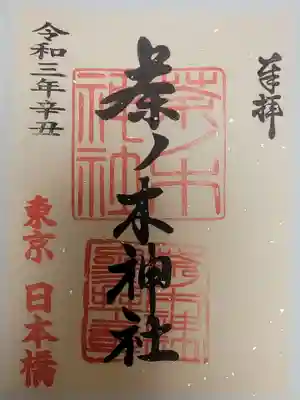 奉拝
茶ノ木神社
令和三年辛丑
東京 日本橋
茶ノ木
神社